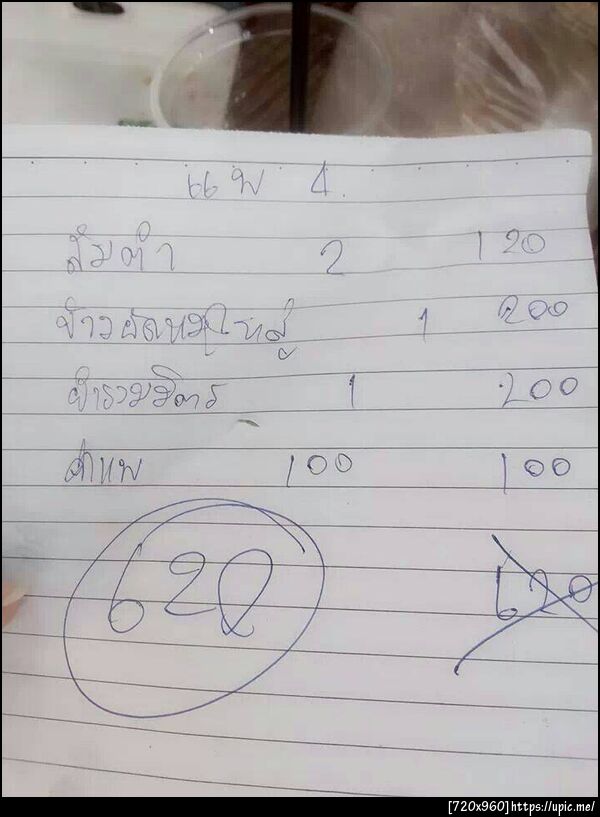 แพ 4.
ส้มตำ 2 120
ข้าวผัดหมูใหญ่ 1 200
ยำรวมมิตร 1 200
ค่าแพ 100 100
620
620
[720x960]https://upic.me/